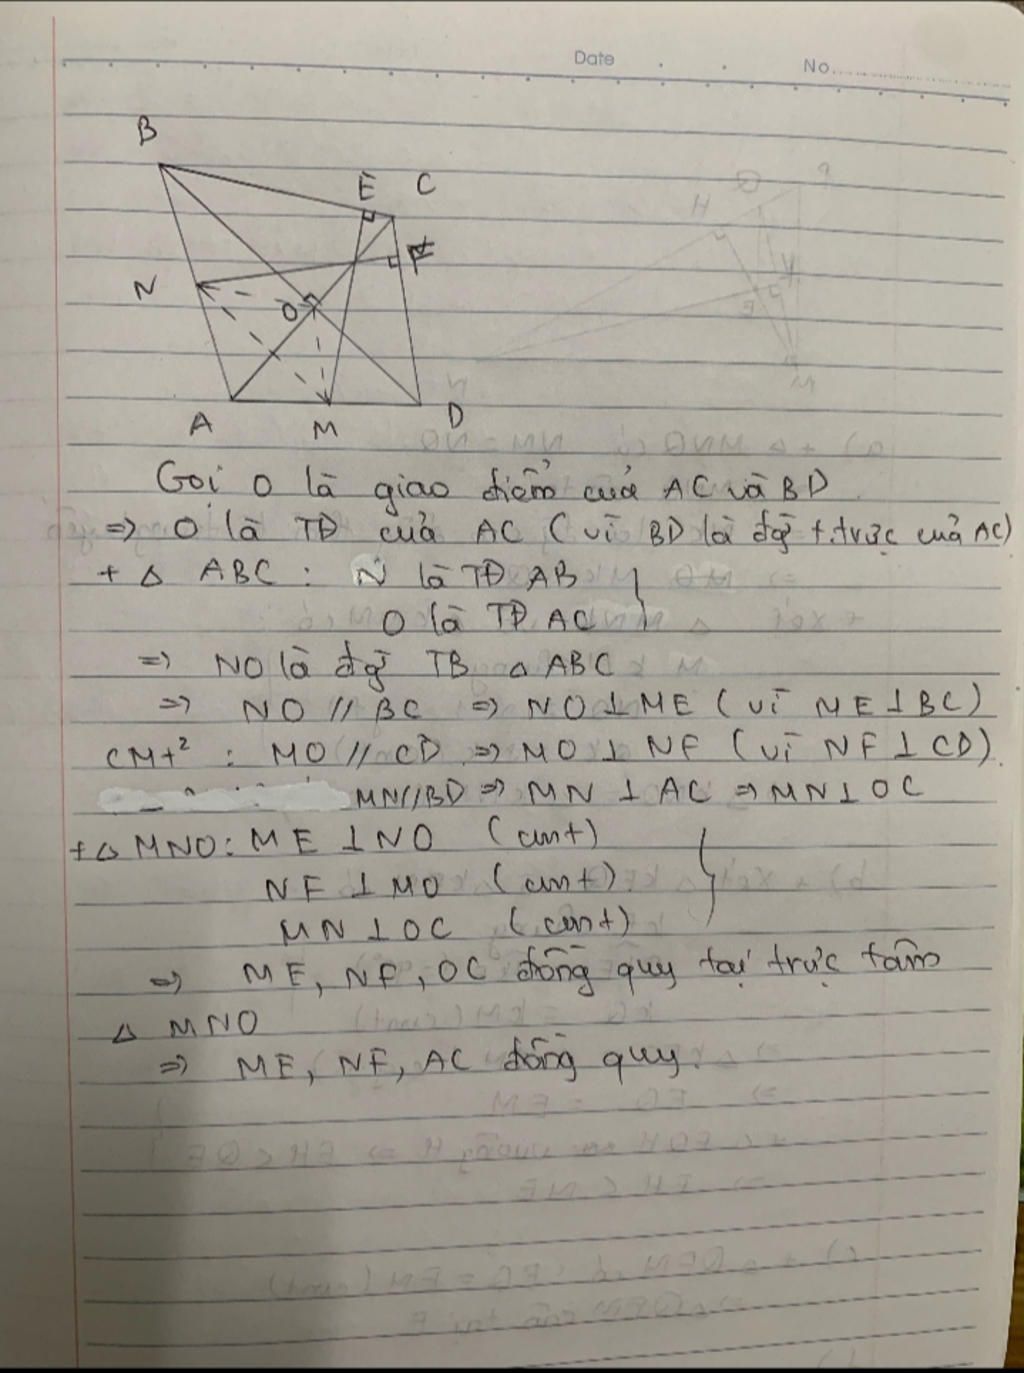 Date
No
B
E
C
F
N
O
A
M
D
Gọi O là giao điểm của AC và BD
=> O là TĐ của AC (vì BD là đg t.trực của AC)
+ Δ ABC : N là TĐ AB
O là TĐ AC
=> NO là đg TB Δ ABC
=> NO // BC => NO ⊥ ME (vì ME ⊥ BC)
CMt² : MO // CD => MO ⊥ NF (vì NF ⊥ CD).
MN // BD => MN ⊥ AC => MN ⊥ OC
+ Δ MNO : ME ⊥ NO (cmt)
NF ⊥ MO (cmt)
MN ⊥ OC (cmt)
=> ME, NF, OC đồng quy tại trực tâm
Δ MNO
=> ME, NF, AC đồng quy.